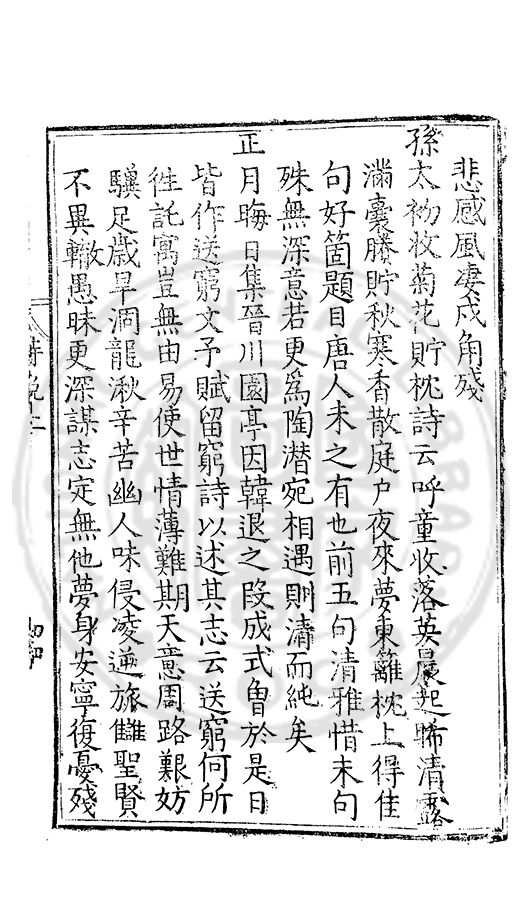 悲感風凄戍角殘
孫太初收菊花貯枕詩云呼童收落英晨起晞清露
滿囊賸貯秋寒香散庭户夜來夢東籬枕上得佳
句好箇題目唐人未之有也前五句清雅惜末句
殊無深意若更爲陶潜宛相遇則清而純矣
正月晦日集晉川園亭因韓退之段成式曾於是日
皆作送窮文予賦留窮詩以述其志云送窮何所
徃託寓豈無由易使世情薄難期天意周路艱妨
驥足歳旱涸龍湫辛苦幽人味侵凌逆旅讎聖賢
不異轍愚昧更深謀志定無他夢身安寧復憂殘